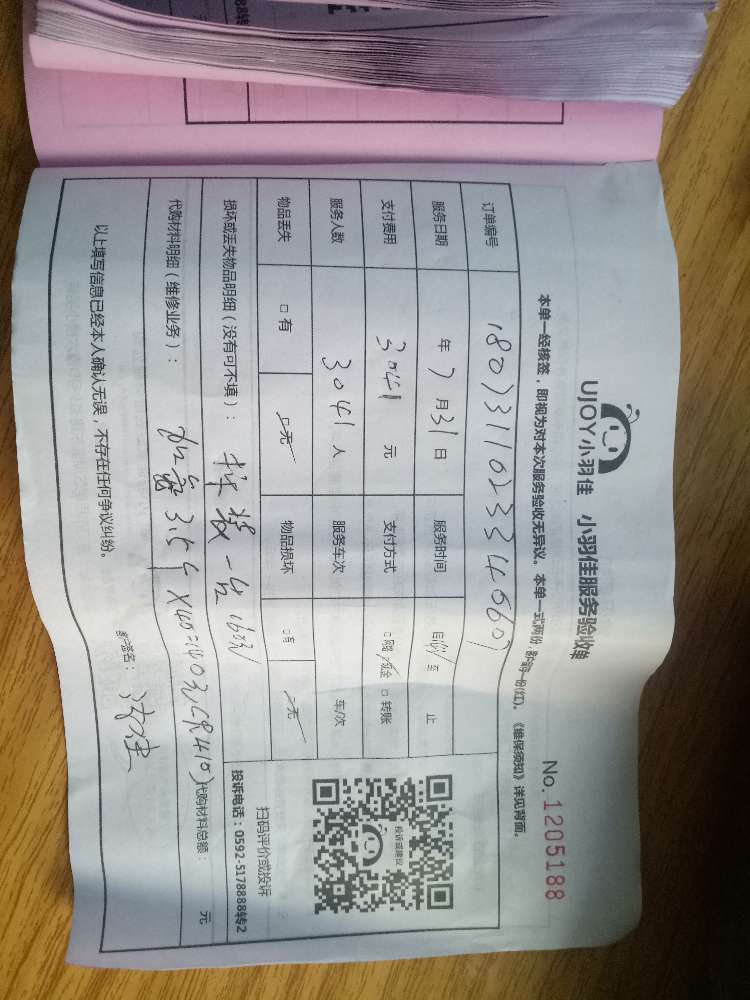 UJOY小羽佳 小羽佳服务验收单
No.1205188
本单一经核签，即视为对本次服务验收无异议。本单一式两份，《维保须知》详见背面。
订单编号 18073110233456
服务日期 年 7 月 31 日 服务时间 自 至 止
支付费用 3041 元 支付方式 □ 现金 □ 转账
服务人数 3041 人 服务车次 车/次
物品丢失 □ 有 □ 无 物品损坏 □ 有 □ 无
损坏或丢失物品明细（没有可不填）： 拆装一台160元
代购材料明细（维修业务）： 加氟3.5个×40=140元(R410) 代购材料总额： 元
以上填写信息已经本人确认无误，不存在任何争议纠纷。
客户签名：
投诉或建议
扫码评价或投诉
投诉电话：0592-5178888转2